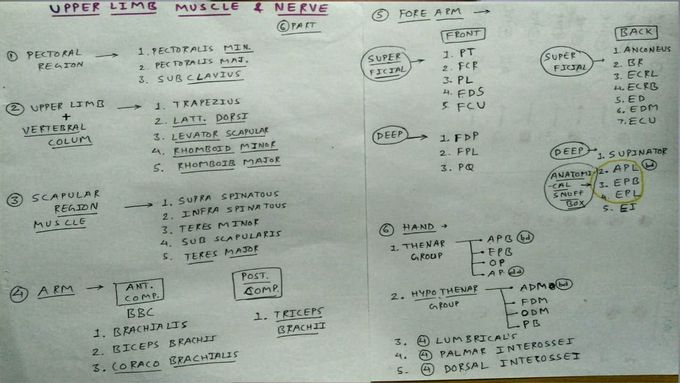 UPPER LIMB MUSCLE & NERVE
6 PART
1 PECTORAL REGION → 1. PECTORALIS MIN.
2. PECTORALIS MAJ.
3. SUBCLAVIUS
2 UPPER LIMB + VERTEBRAL COLUM → 1. TRAPEZIUS
2. LATT. DORSI
3. LEVATOR SCAPULAR
4. RHOMBOID MINOR
5. RHOMBOIB MAJOR
3 SCAPULAR REGION MUSCLE → 1. SUPRA SPINATOUS
2. INFRA SPINATOUS
3. TERES MINOR
4. SUB SCAPULARIS
5. TERES MAJOR
4 ARM → ANT. COMP.
BBC
1. BRACHIALIS
2. BICEPS BRACHII
3. CORACO BRACHIALIS
POST. COMP.
1. TRICEPS BRACHII
5 FORE ARM →
FRONT
SUPER FICIAL → 1. PT
2. FCR
3. PL
4. FDS
5. FCU
DEEP → 1. FDP
2. FPL
3. PQ
BACK
SUPER FICIAL → 1. ANCONEUS
2. BR
3. ECRL
4. ECRB
5. ED
6. EDM
7. ECU
DEEP → 1. SUPINATOR
2. APL bd
3. EPB
4. EPL
5. EI
ANATOMI-CAL SNUFF BOX →
6 HAND →
1. THENAR GROUP → APB bd
FPB
OP
AP dd
2. HYPOTHENAR GROUP → ADM bd
FDM
ODM
PB
3. 4 LUMBRICAL'S
4. 4 PALMAR INTEROSSEI
5. 4 DORSAL INTEROSSEI